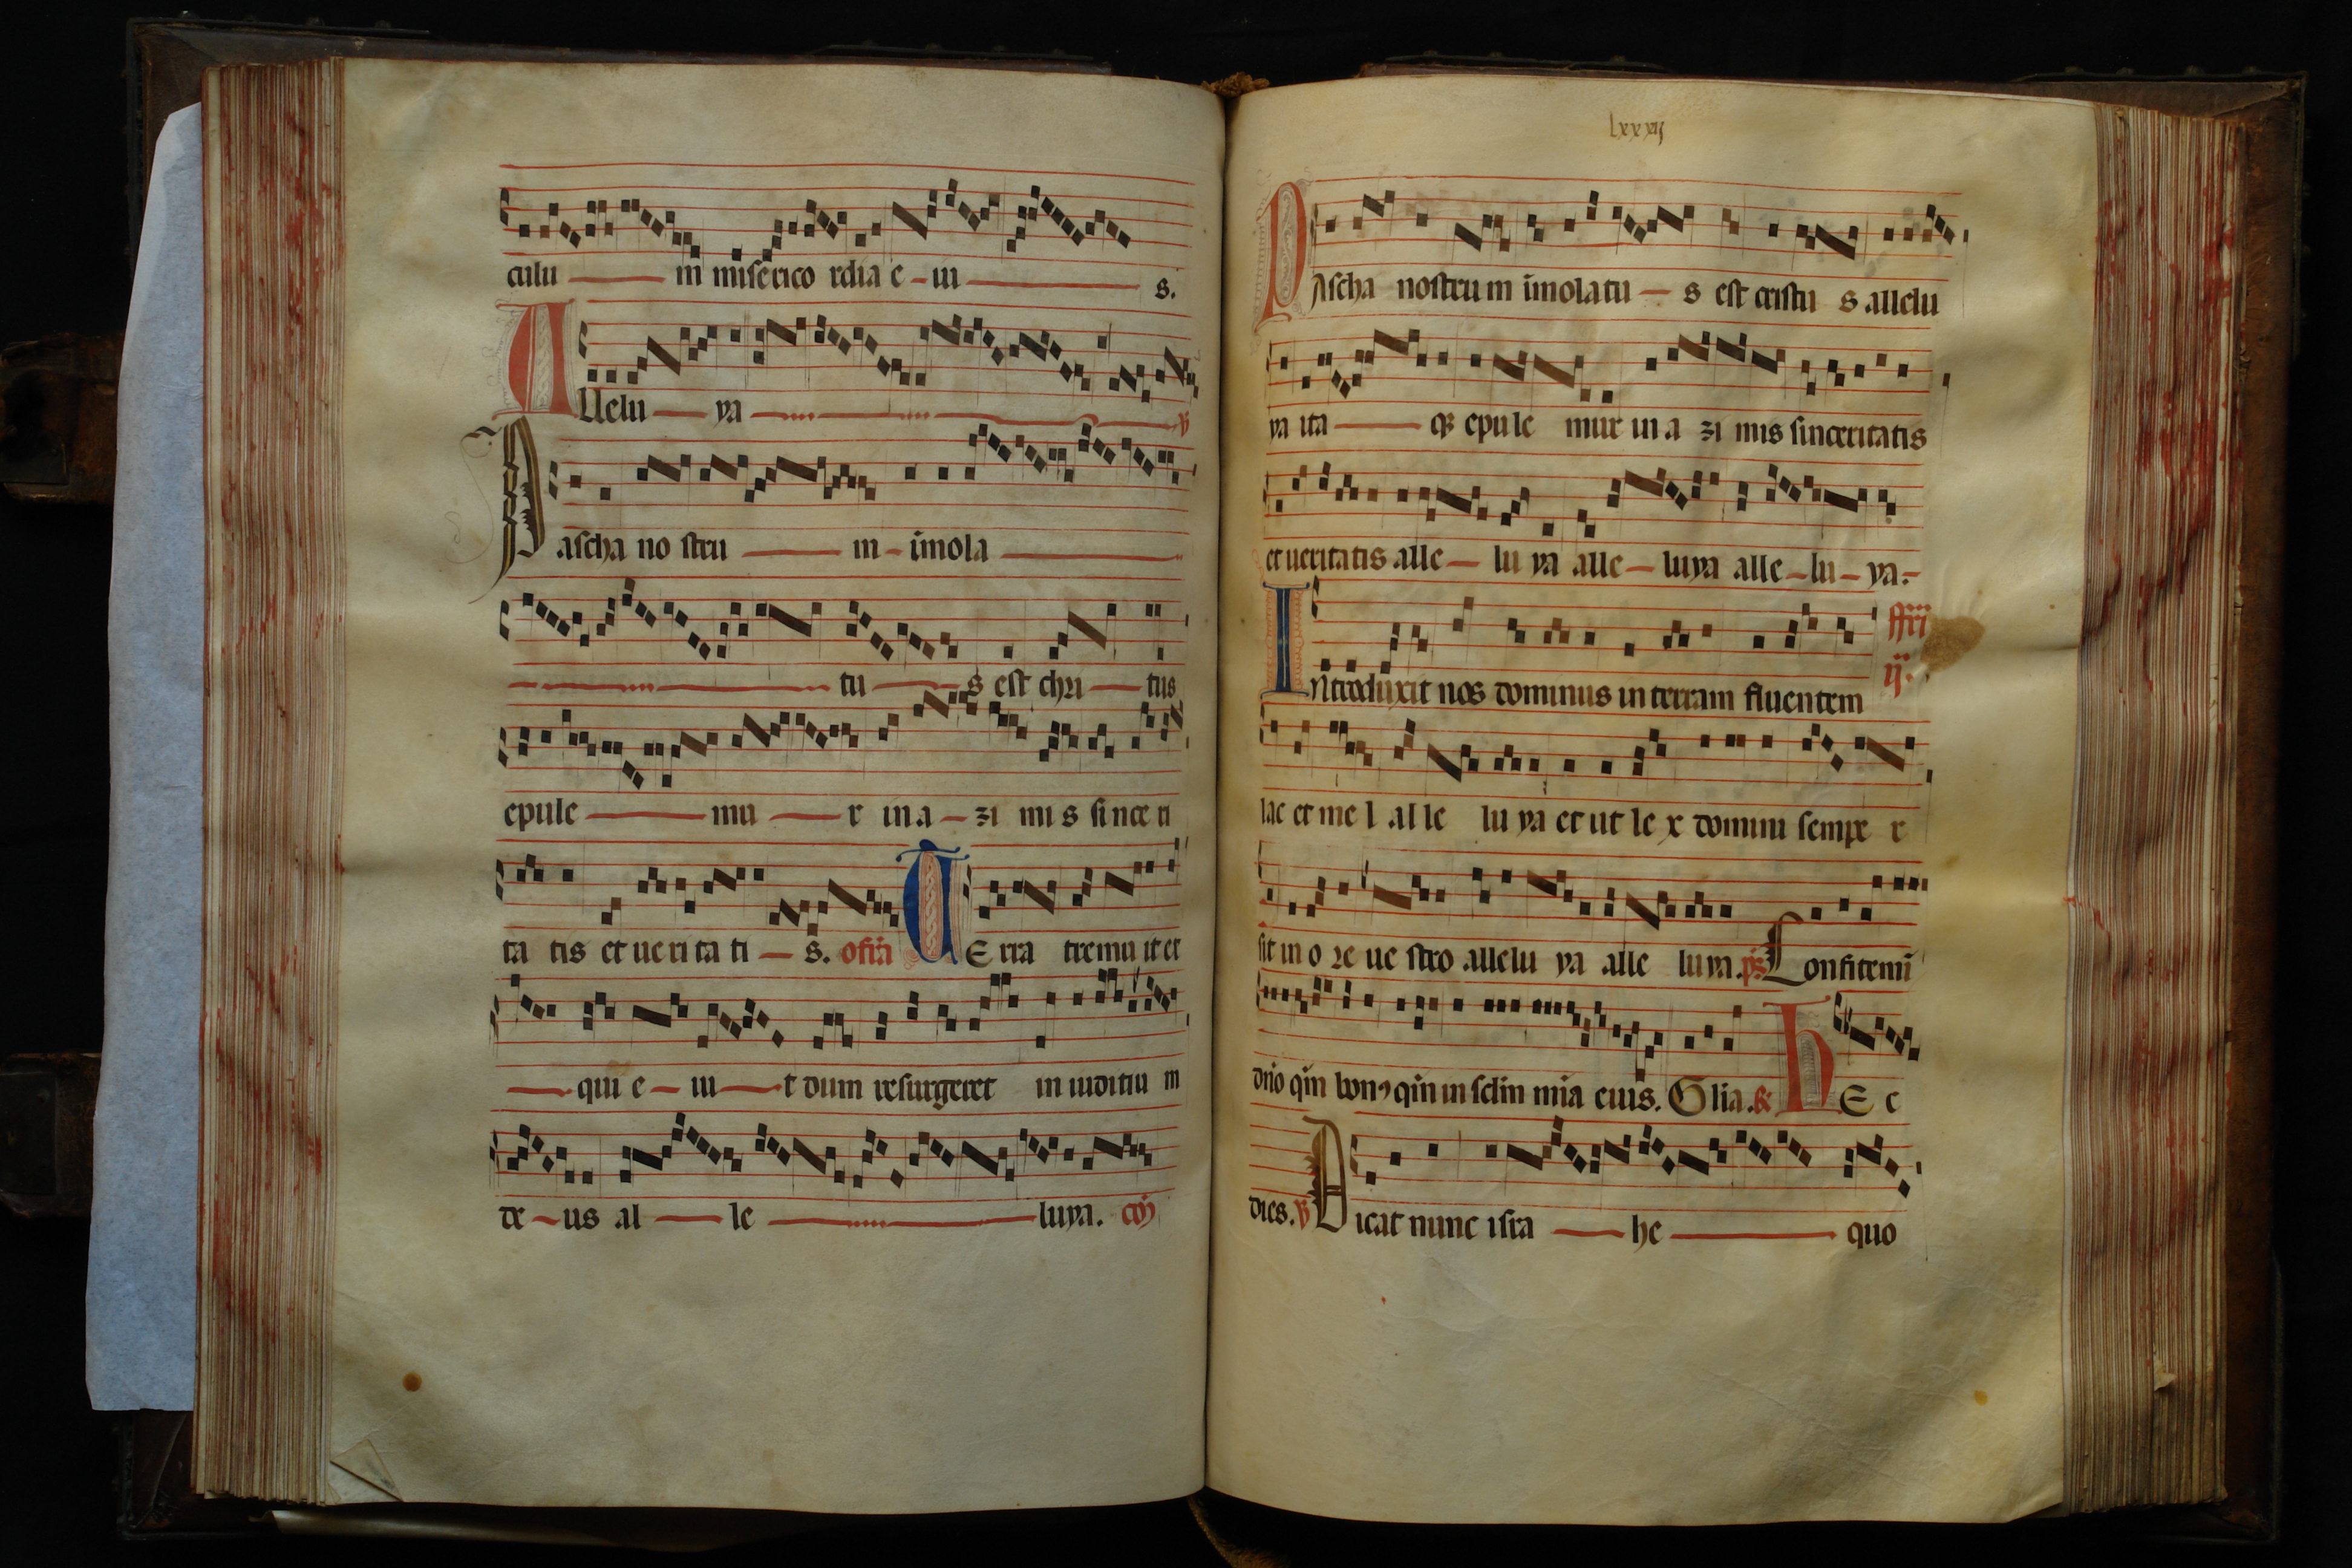 culu m miserico rdia e ius.
Allelu ya ℣
Pascha no stru m imola
tu s est chri stus
epule mu r in a zi mis sinceri
ta tis et ueri ta ti s. offa Terra tremu it et
qui e ui t dum resurgeret in iuditiu m
de us al le luya. co
lxxxij
Pascha nostrum imolatu s est cristu s allelu
ya ita q epule mur in a zi mis sinceritatis
et ueritatis alle lu ya alle luya alle lu ya.
Introduxit nos dominus in terram fluentem
ij.
lac et me l al le lu ya et ut le x domini sempe r
sit in o re ue stro allelu ya alle luya. ps Confitemi
dno qm bon9 qm in sclm mia eius. Glia. & hec
dies. ℣ Dicat nunc isra he quo